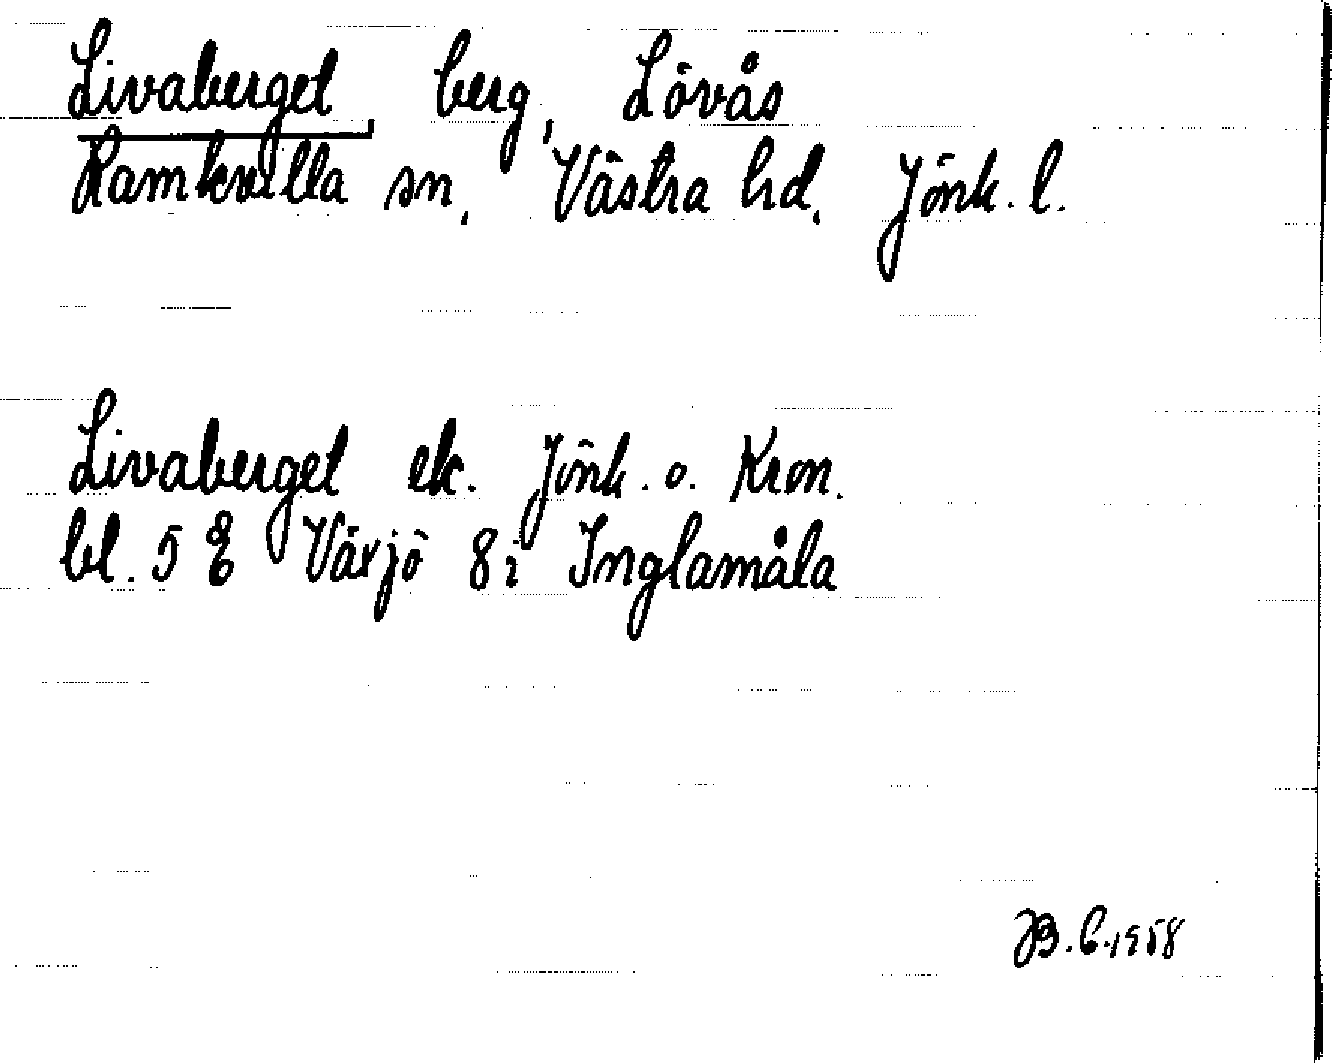 Livaberget, berg, Lövås
Ramkvilla sn, Västra hd, Jönk. l.
Livaberget ek. Jönk. o. Kron.
bl. 5 E Växjö 8i Inglamåla
B. 6.1958